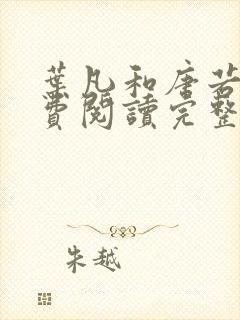 葉凡和唐若
費閱讀完整
朱越